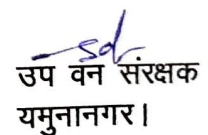 -sd-
उप वन संरक्षक
यमुनानगर।